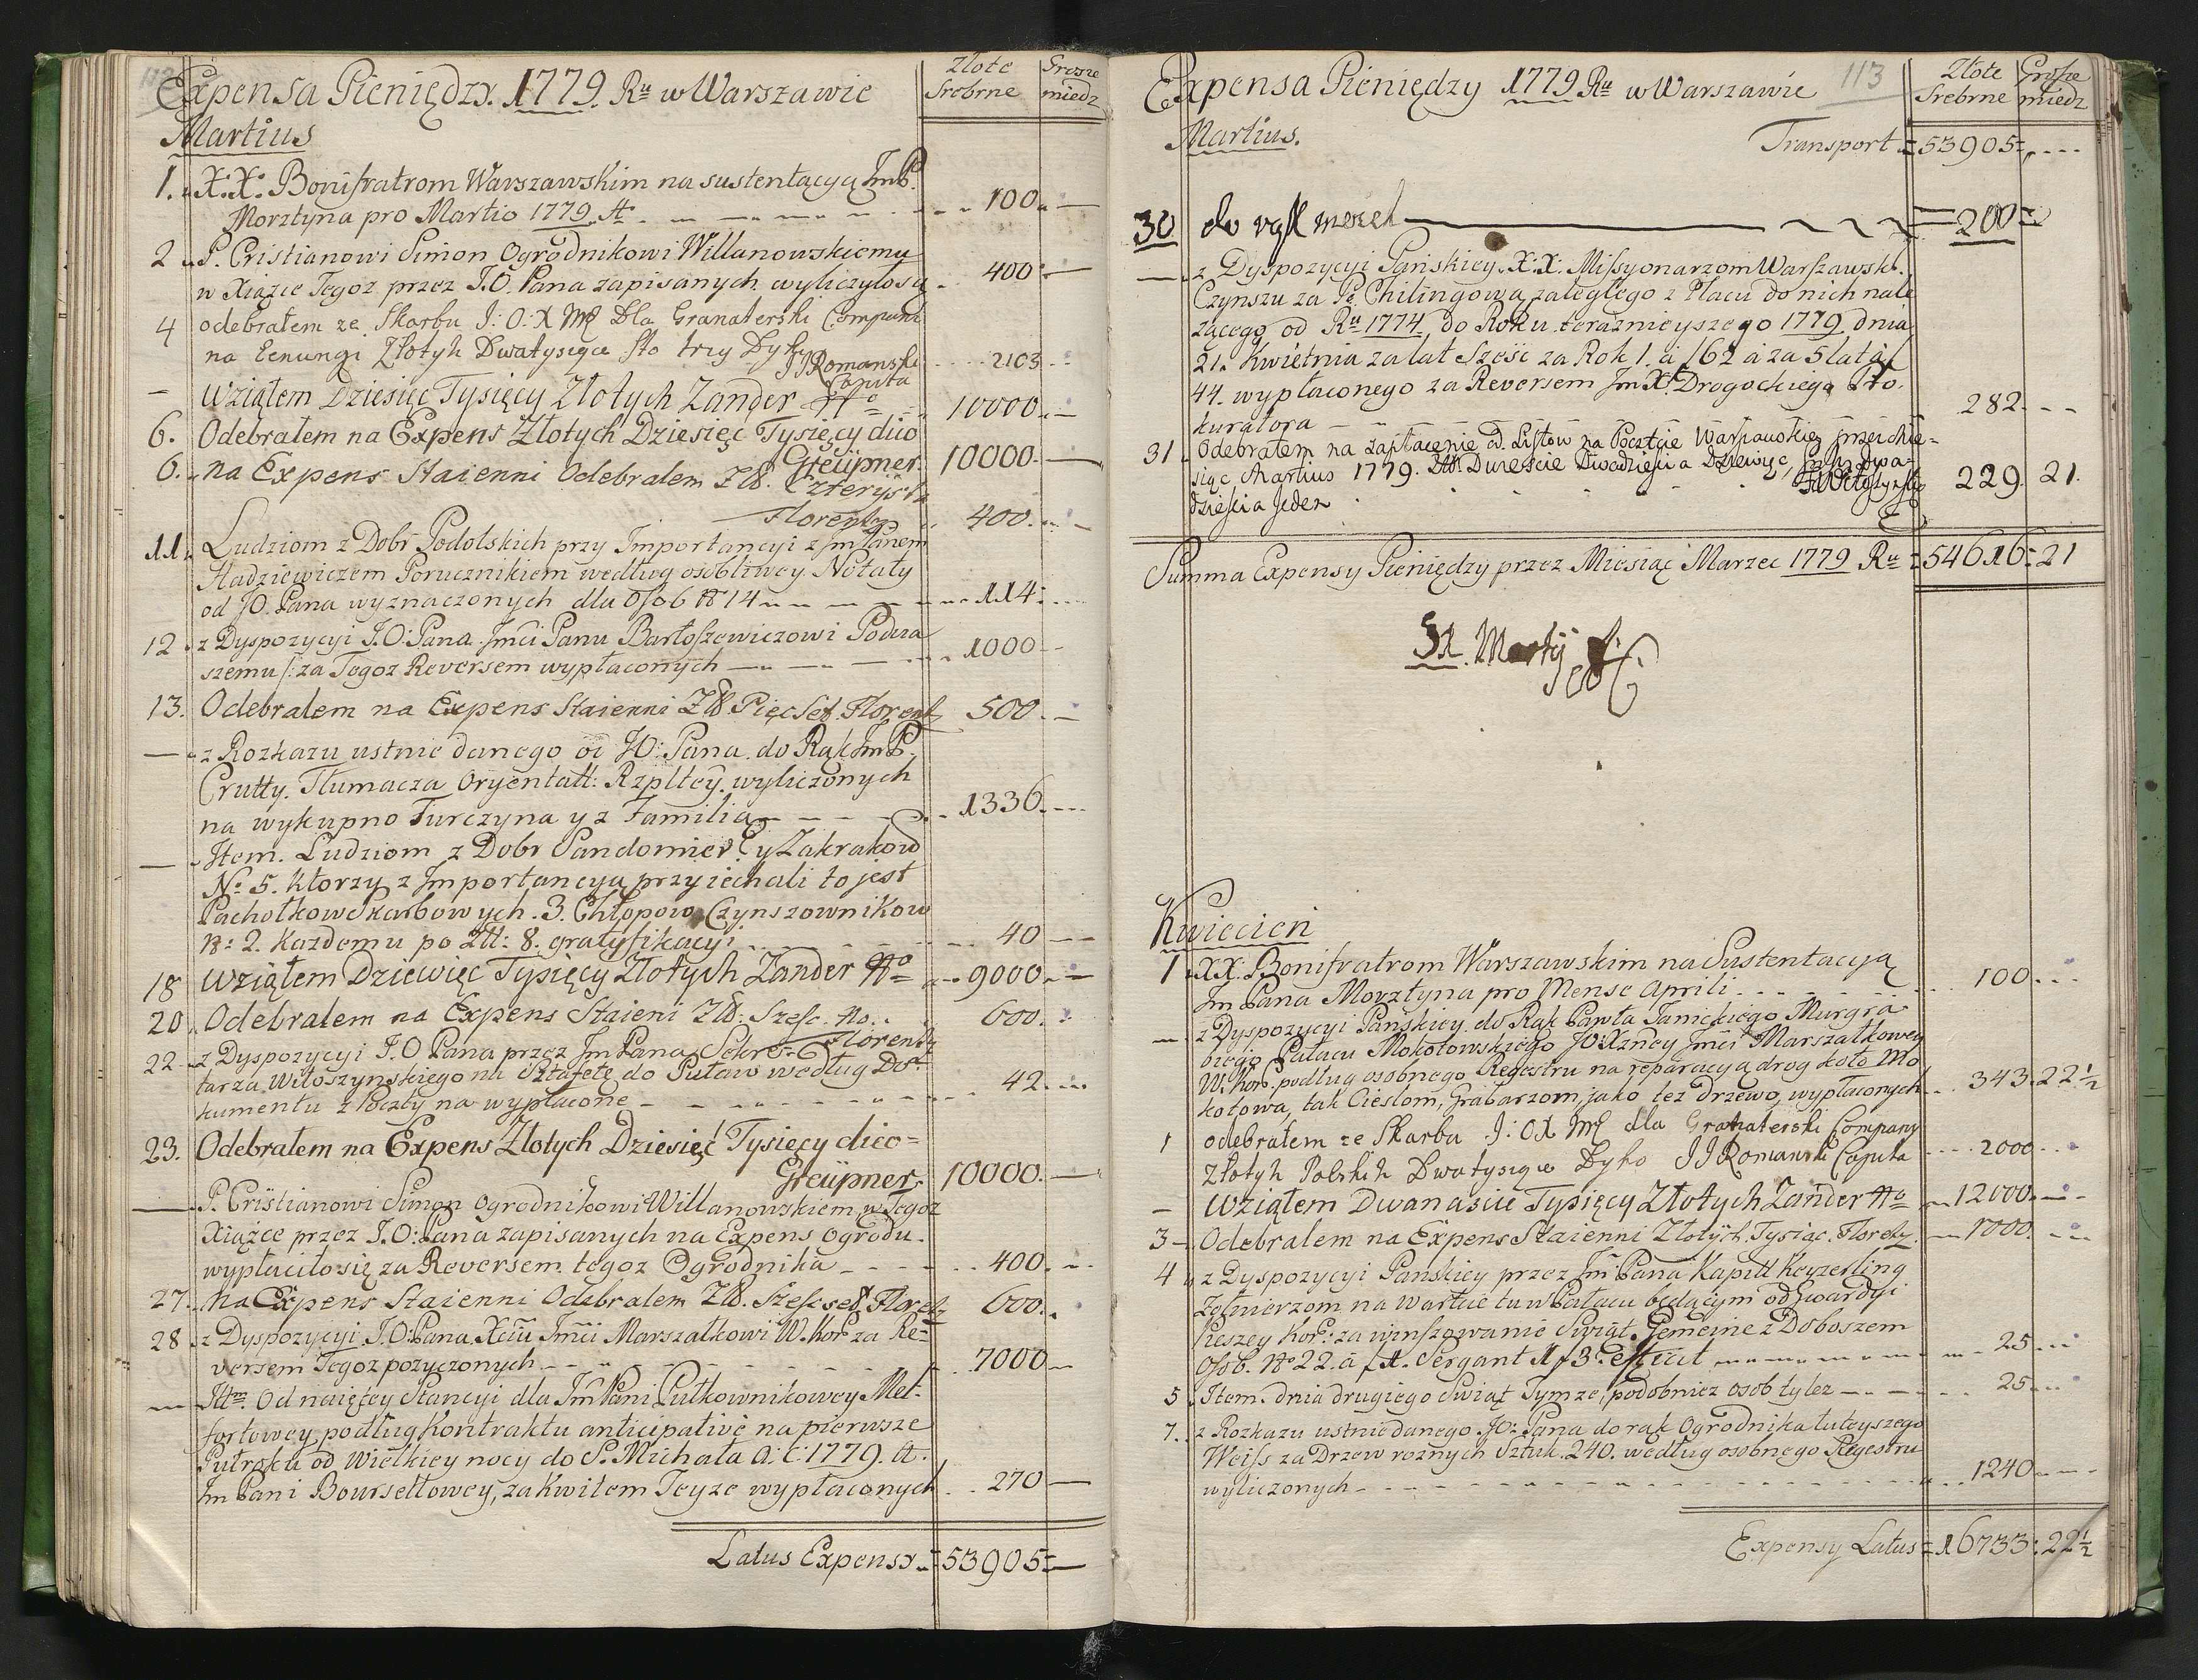 Expensa Pieniędzy. 1779. Ru w Warszawie
Złote Grosze
Srebrne miedz
Martius
1. X.X. Bonifratrom Warszawskim na sustentacyą ImP.
Morztyna pro Martio 1779. A. 100
2 P. Cristianowi Simon Ogrodnikowi Willanowskiemu
w Xiążce Tegoz przez J.O. Pana zapisanych wyliczyło się 400
4 odebrałem ze Skarbu J: O: X Dla Granaterski Compani
na Lenungi Złotyh Dwatysiące sto trzy Dyko 2103
JJRomanski
Caputa
Wziąłem Dziesięć Tysięcy Złotych Zander 10000
6. Odebrałem na Expens Złotych Dziesięc Tysięcy dico
Gteüpner 10000
6. na Expens Staienni Odebralem Zł. Czterÿsta
Florenty 400
11. Ludziom z Dobr Podolskich przy Importancyi z Im Panem
Stadziewiczem Porucznikiem według osobliwey Notaty
od JO. Pana wyznaczonych dla Osob N 14 114
12 z Dyspozycyi J.O: Pana Jmci Panu Bartoszewiczowi Podcza
szemu /: za Tegoz Reversem wypłaconych 1000
13. Odebralem na Expens Staienni Zł. Pięcset. Florenty 500
z Rozkazu ustnie danego od JO: Pana do Rąk Im P.
Crutty. Tłumacza Oryentall: Rzpltey. wyliczonych
na wykupno Turczyna y z Familią 1336
Item. Ludziom z Dobr Sandomier: y Zakrakow
No 5. Ktorzy z Importancyą przyiechali to jest
Pachołkow Skarbowych. 3. Chłopow Czynszownikow
N: 2. Kazdemu po Złł: 8. gratyfikacyi 40
18 Wziąłem Dziewięć Tysięcy Złotych Zander 9000
20 Odebralem na Expens Staieni Zł: Szesc. 600
Florenty
22 z Dyspozycyi J.O Pana przez Im Pana Sekre-
tarza Witoszynskiego na Sztafetę do Puław według Do-
kumentu z Poczty na wypłacone 42
23. Odebrałem na Expens Złotych Dziesięć Tysięcy dico=
Gteüpner 10000
P. Cristianowi Simon Ogrodnikowi Willanowskiem, w Tegoz
Xiążce przez J.O: Pana zapisanych na Expens Ogrodu.
wypłaciło się za Reversem tegoz Ogrodnika 400
27. na Expens Staienni Odebralem Zł. Szescset. Florenty 600
28 z Dyspozycyi J.O: Pana Xciu Jmci Marszałkowi W. Kor: za Re=
versem Tegoz pozyczonych 7000
Itm. Od naiętey Stancyi dla Im Pani Pułkownikowey Mel-
fortowey podług Kontraktu anticipative na pierwsze
Pułroku od Wielkiey nocy do S. Michała a: c: 1779. A.
Im Pani Boursettowey, za kwitem Teyze wypłaconych 270
Latus Expensy 53905
Expensa Pieniędzy 1779 Ru w Warszawie 113
Złote Grosze
Srebrne miedz
Martius.
Transport 53905
30 200
z Dyspozycyi Pańskiey. X: X: Missyonarzom Warszawsk.
Czynszu za Pę. Chilingową zaległego z Placu do nich nale
zącego od Ru 1774 do Roku teraznieyszego 1779 dnia
21. Kwietnia za lat sześć za Rok 1. á /62 á za 5 lat á /
44. wypłaconego za Reversem Im X. Drogockiego Pro-
kuratora 282
31 Odebrałem na zapłacenie od Listow na Poczcie Warszawskiey przez mie-
siąc Martius 1779. Zł. Dwieście Dwadzieścia Dziewięć, Gr. dwa-
dzieścia jeden 229. 21.
FWitoszynski
Summa Expensy Pieniędzy przez Miesiąc Marzec 1779 Ru 54616: 21
31. Martij
Kwiecień
1 XX: Bonifratrom Warszawskim na Sustentacyą
Im Pana Morztyna pro Mense Aprili 100
z Dyspozycyi Pańskiey do Rąk Pawła Janickiego Murgra
biego Pałacu Mokotowskiego JO: Xzney Jmci Marszałkowey
W: Kor: podług osobnego Regestru na reparacyą drog koło Mo
kotowa, tak Cieslom, Grabarzom, jako tez drzewo, wypłaconych 343. 22½
1 odebrałem ze Skarbu J: O X dla Granaterski Company
Złotyh Polskih Dwatysiące Dyko JJRomanski Caputa 2000
Wziąłem Dwanascie Tysięcy Złotych Zander 12000
3 Odebralem na Expens Staienni Złotych. Tysiąc. Florenty. 1000
4 z Dyspozycyi Pańskiey przez Im Pana Kapitt Keyzerling
Zołnierzom na Warcie tu w Pałacu będącym od Gwardyi
Pieszey Kor: za winszowanie Swiąt. Gemeine z Doboszem
Osob. No 22. á /1. Sergant 1 /3. efficit 25
5 Item. dnia drugiego Swiąt Tymze, podobniez osob tylez 25
7. z Rozkazu ustnie danego JO: Pana do rąk Ogrodnika tuteyszego
Weiss za Drzew roznych Sztuk. 240. według osobnego Regestru
wyliczonych 1240
Expensy Latus 16733: 22½